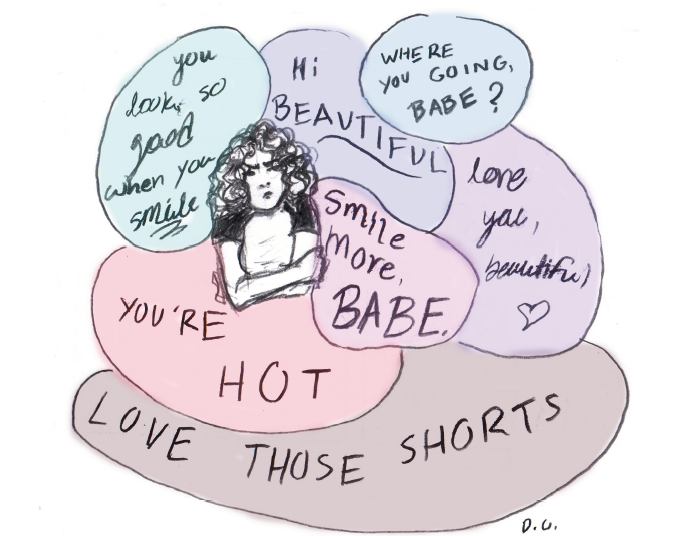 you
look so
good
when you
smile
Hi
BEAUTIFUL
WHERE
YOU GOING,
BABE?
love
you,
beautiful
♡
Smile
More,
BABE.
YOU'RE
HOT
LOVE THOSE SHORTS
D.G.